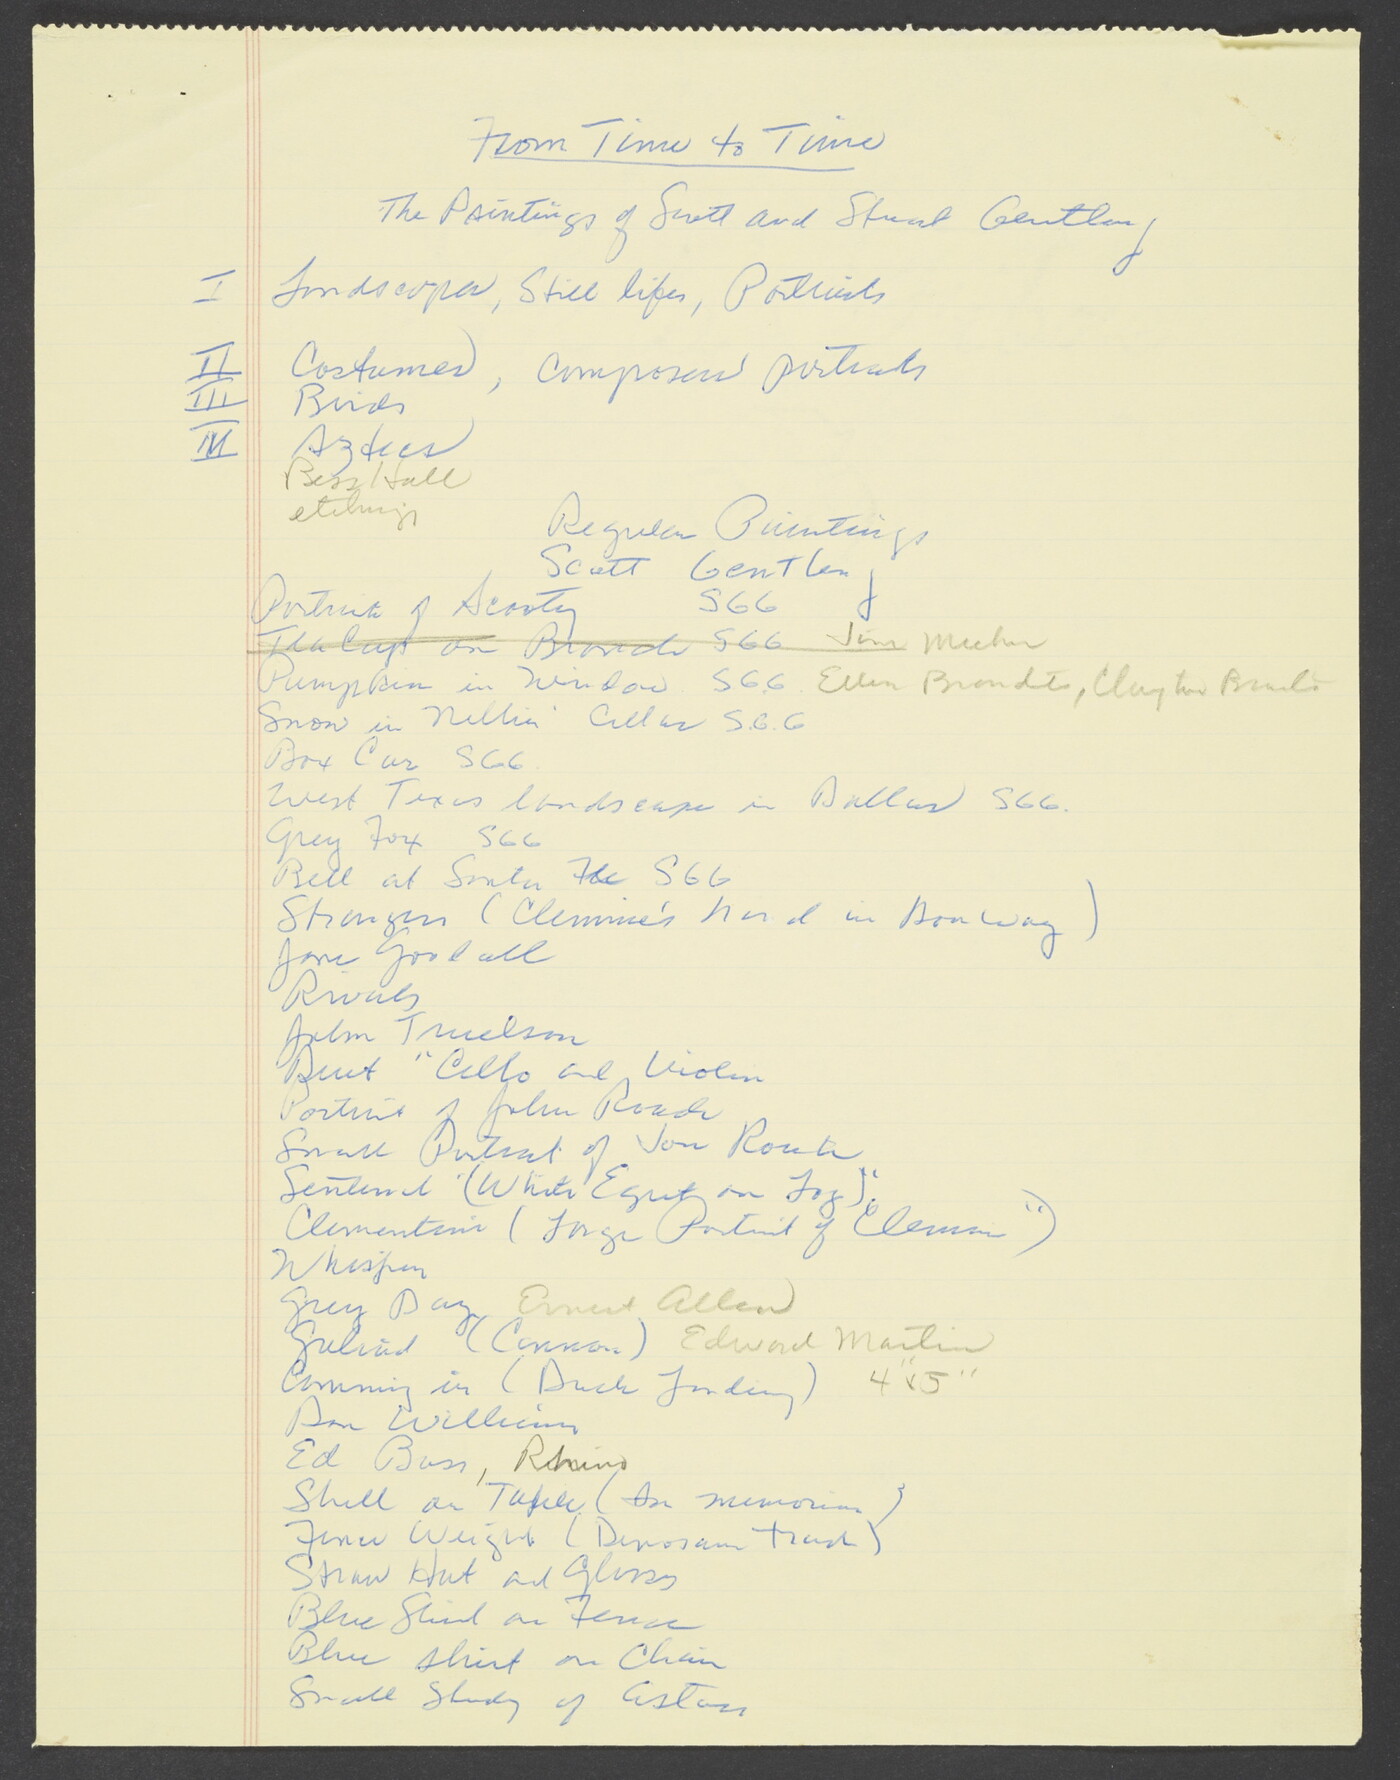 From Time to Time
The Paintings of Scott and Stuart Gentling
I Landscapes, Still lifes, Portraits
II Costumed, composed portraits
III Birds
IV Aztecs
Bass Hall
etchings
Regular Paintings
Scott Gentling
Portrait of Scooty S66
Tea Cup on Branch S66 Jim Meeker
Pumpkin in Window S66 Ellen Brandts, Clayton
Snow in Nellie' Cellar S.6.6
Box Car S66
West Texas landscape in Dallas S66.
Grey Fox S66
Bell at Santa Fe S66
Strangers (Clemmie's hand in Doorway)
Jane Goodall
Rivals
John Truelson
Duet "Cello and Violin
Portrait of John Roach
Small Portrait of Jon Roach
Sentinel "(White Egret on Log)".
Clementine (Large Portrait of Clemmie")
Whisper
Grey Day Ernest Allen
Goliad (Cannon) Edward Martin
Comming in (Duck Landing) 4"x5"
Don Williams
Ed Bass, Rhino
Shell on Table (In memorium)
Fence Weight (Dinosaur track)
Straw Hat and Glasses
Blue Shirt on Fence
Blue shirt on Chair
Small Study of Asters